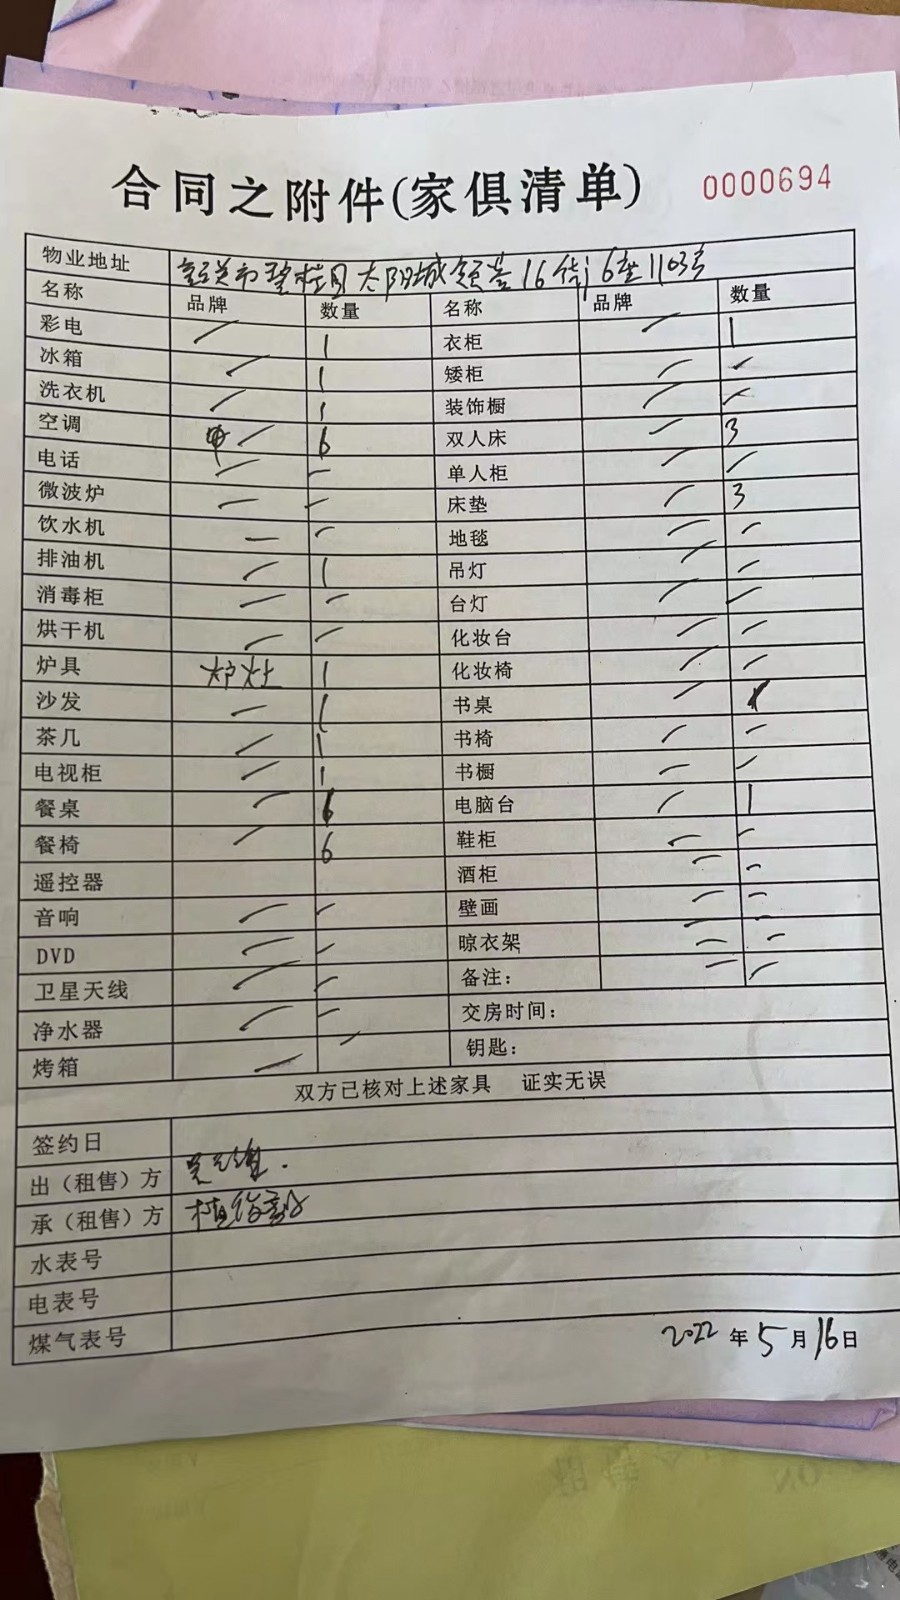 合同之附件(家俱清单) 0000694
物业地址 韶关市碧桂园太阳城颐景16街6座1103号
名称 品牌 数量 名称 品牌 数量
彩电 / 1 衣柜 / 1
冰箱 / 1 矮柜 / /
洗衣机 / 1 装饰橱 / /
空调 / 6 双人床 / 3
电话 / / 单人柜 / /
微波炉 / / 床垫 / 3
饮水机 / / 地毯 / /
排油机 / 1 吊灯 / /
消毒柜 / / 台灯 / /
烘干机 / / 化妆台 / /
炉具 炉灶 1 化妆椅 / /
沙发 / 1 书桌 /
茶几 / 1 书椅 / /
电视柜 / 1 书橱 / /
餐桌 / 电脑台 / 1
餐椅 / 6 鞋柜 / /
遥控器 酒柜 / /
音响 / / 壁画 / /
DVD / / 晾衣架 / /
卫星天线 / / 备注: / /
净水器 / / 交房时间:
烤箱 / / 钥匙:
双方已核对上述家具 证实无误
签约日
出（租售）方
承（租售）方
水表号
电表号
煤气表号
2022年5月16日